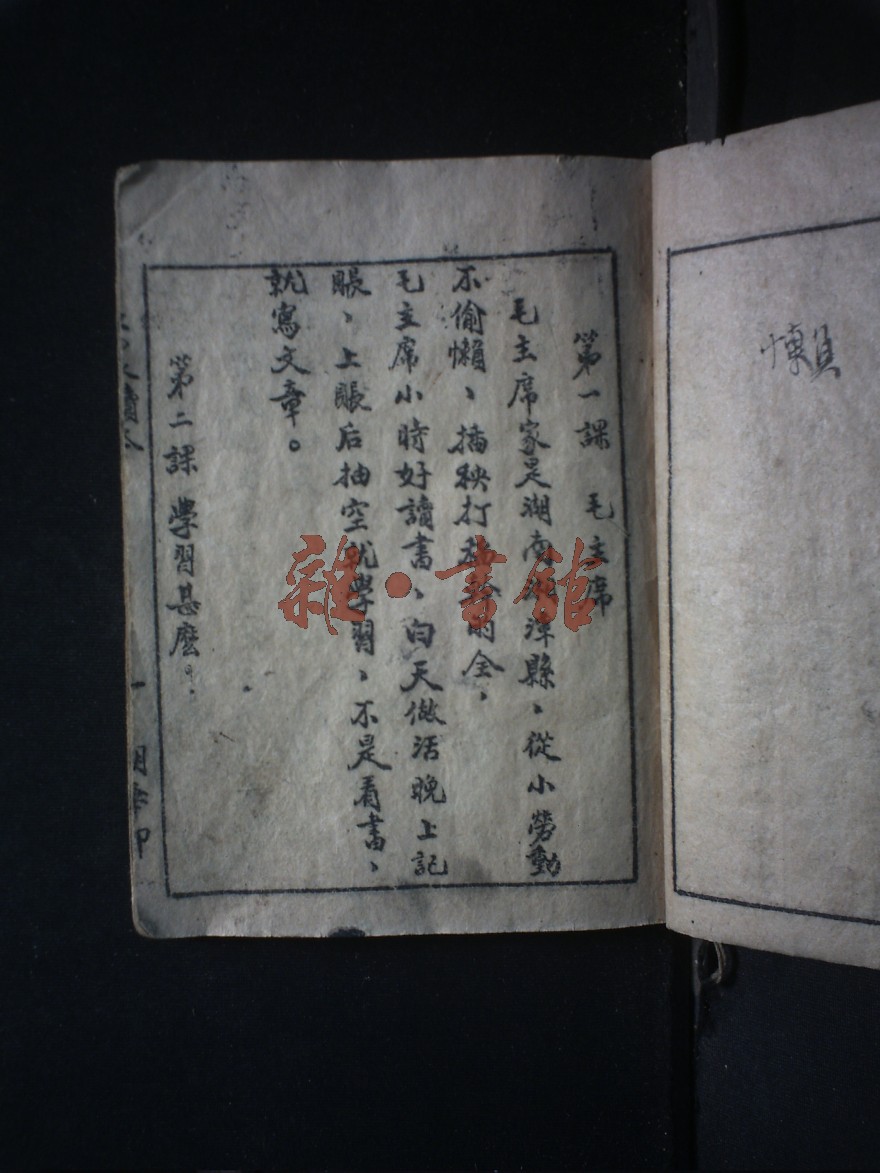 懶
第一課 毛主席
毛主席家是湖南湘潭縣、從小勞動
不偷懶、插秧打
全、
毛主席小時好讀書、白天做活晚上記
賬、上賬后抽空就學習、不是看書、
就寫文章。
第二課 學習甚麼
讀本
一
雜·書館